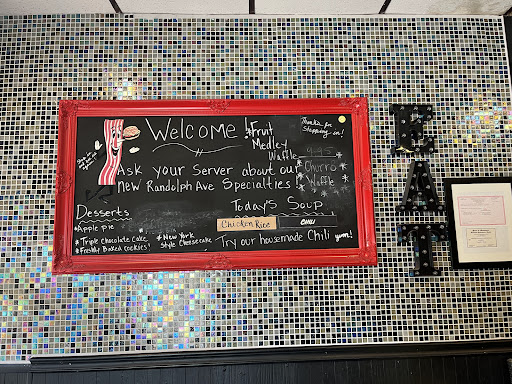 Welcome!
Fruit
Medley
Waffle
9.95
Thanks for
stopping in!
Ask your Server about our
new Randolph Ave Specialties!
Churro
Waffle
Desserts
*Apple pie
*Triple Chocolate Cake
*Freshly Baked cookies!
*New York
style Cheesecake
Today's Soup
Chicken Rice
CHILI
Try our housemade Chili yum!
EAT